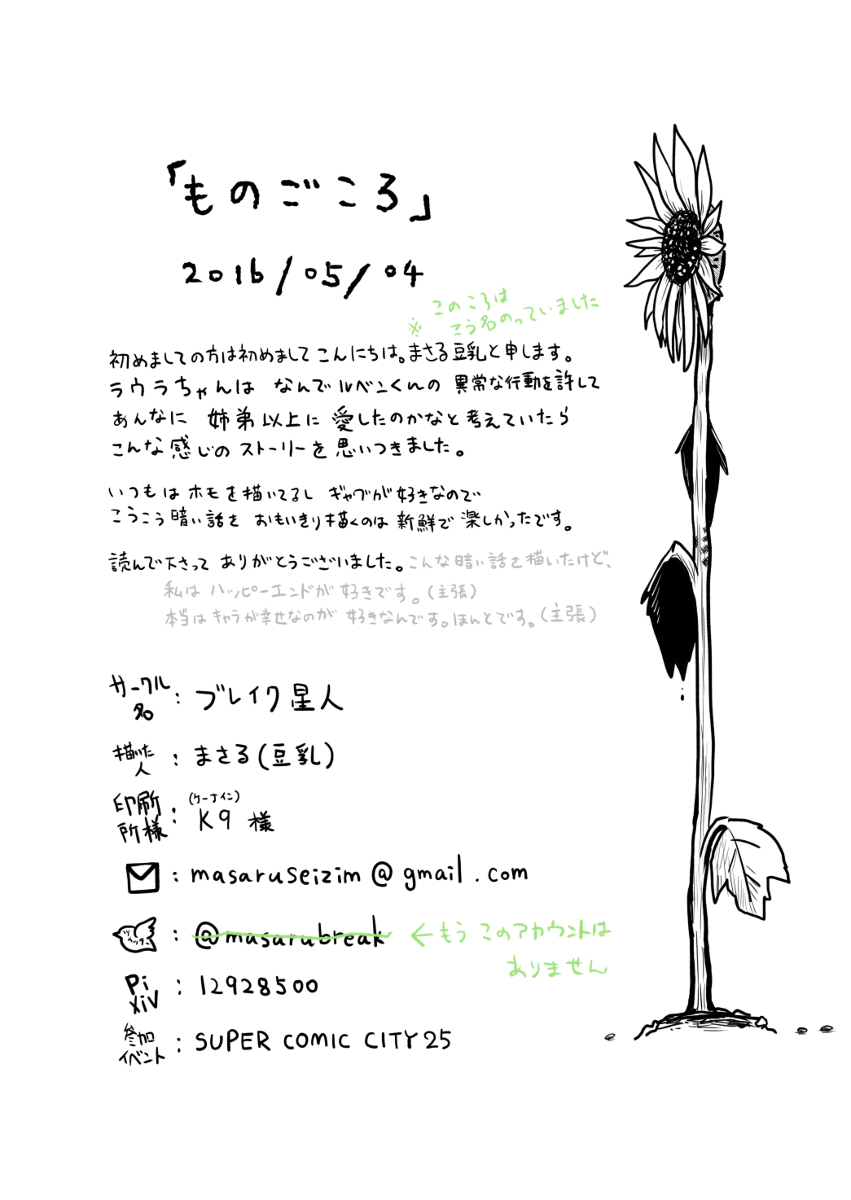 「ものごころ」
2016/05/04
※このころは
こう名のっていました
初めましての方は初めまして こんにちは。まさる豆乳と申します。
ラウラちゃんは なんでルベンくんの 異常な行動を許して
あんなに 姉弟以上に 愛したのかなと考えていたら
こんな感じの ストーリーを 思いつきました。
いつもは ホモを描いてるし ギャグが好きなので
こうこう暗い話を おもいきり描くのは 新鮮で 楽しかったです。
読んで下さって ありがとうございました。こんな暗い話を描いたけど、
私は ハッピーエンドが 好きです。(主張)
本当はキャラが幸せなのが 好きなんです。ほんとです。(主張)
サークル名 : ブレイク星人
描いた人 : まさる(豆乳)
印刷所様 : K9(ケーナイン) 様
: masaruseizim@gmail.com
ツイッター : @masarubreak ←もう このアカウントは
ありません
PiXiV : 12928500
参加イベント : SUPER COMIC CITY 25